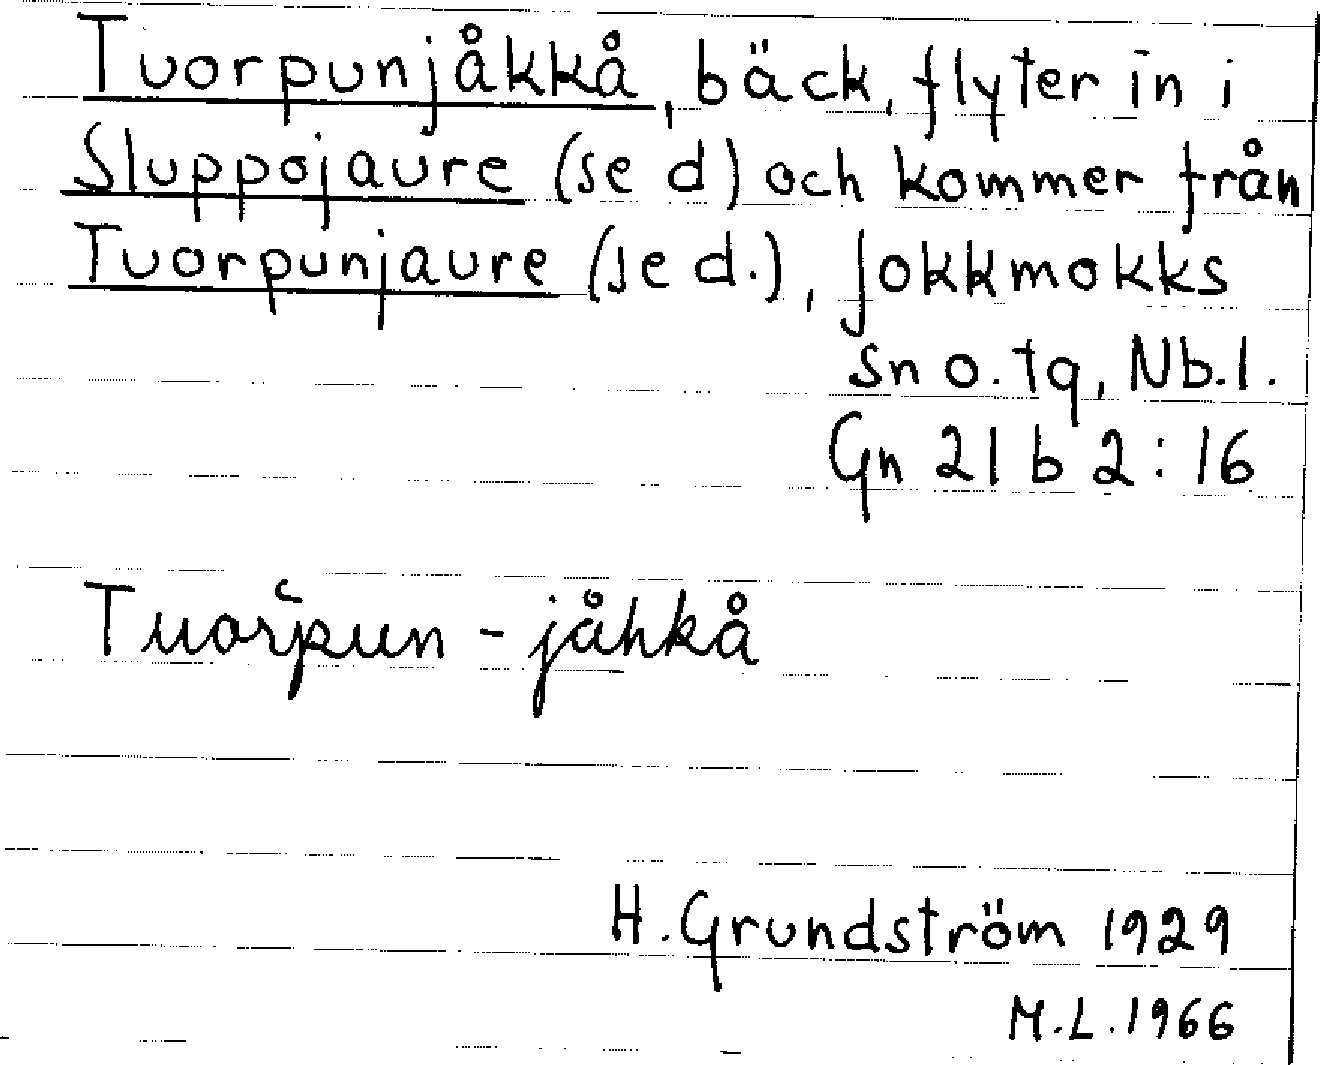 Tuorpunjåkkå, bäck, flyter in i
Sluppojaure (se d) och kommer från
Tuorpunjaure (se d.), Jokkmokks
sn o. tg, Nb.l.
Gn 21 b 2:16
Tuor̆pun-jåhkå
H. Grundström 1929
M.L. 1966